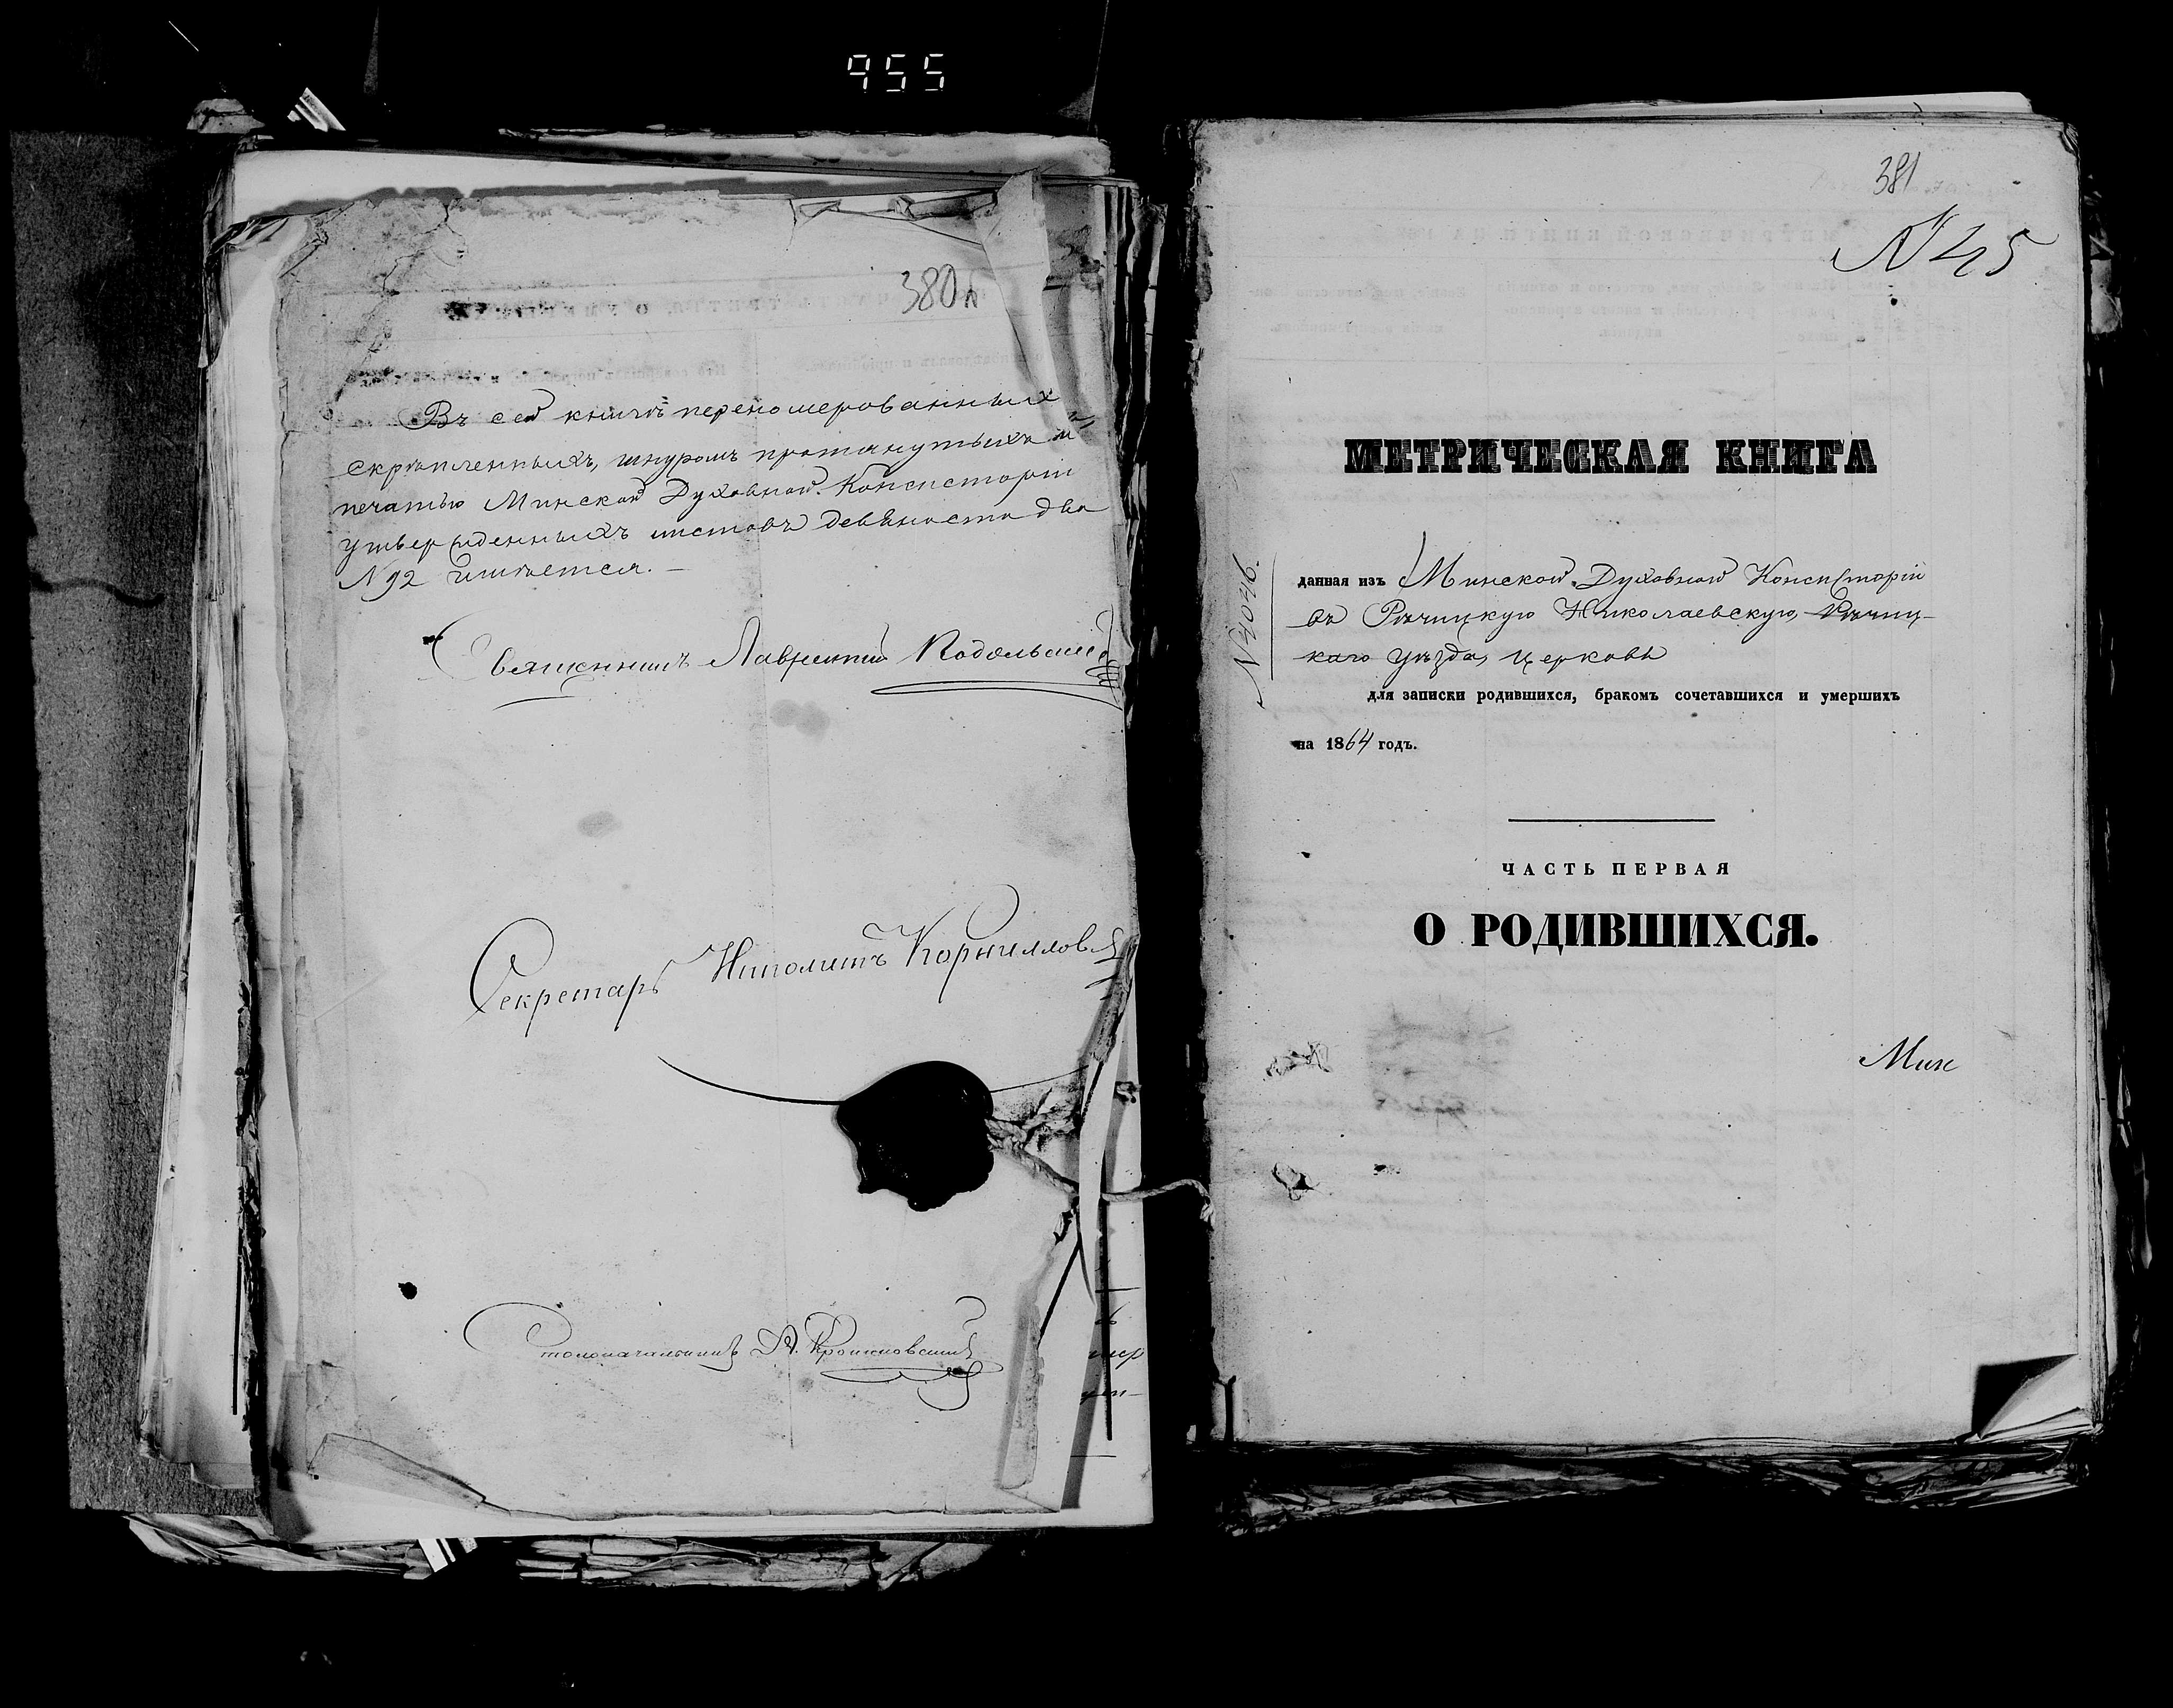 955
380б
Въ сей книгѣ перенумерованныхъ
скрѣпленныхъ, шнуромъ протянутыхъ и
печатью Минской Духовной Консисторіи
утвержденныхъ листовъ девяносто два
N 92 имѣется. —
Священникъ Лаврентій Подольскій
Секретарь Иполитъ Корнилловъ
Столоначальникъ А.
381
N 45
МЕТРИЧЕСКАЯ КНИГА
N 4046.
данная изъ Минской Духовной Консисторіи
въ Рѣчицкую Николаевскую, Рѣчиц-
каго уѣзда, церковь
для записки родившихся, бракомъ сочетавшихся и умершихъ
на 1864 годъ.
ЧАСТЬ ПЕРВАЯ
О РОДИВШИХСЯ.
Мин